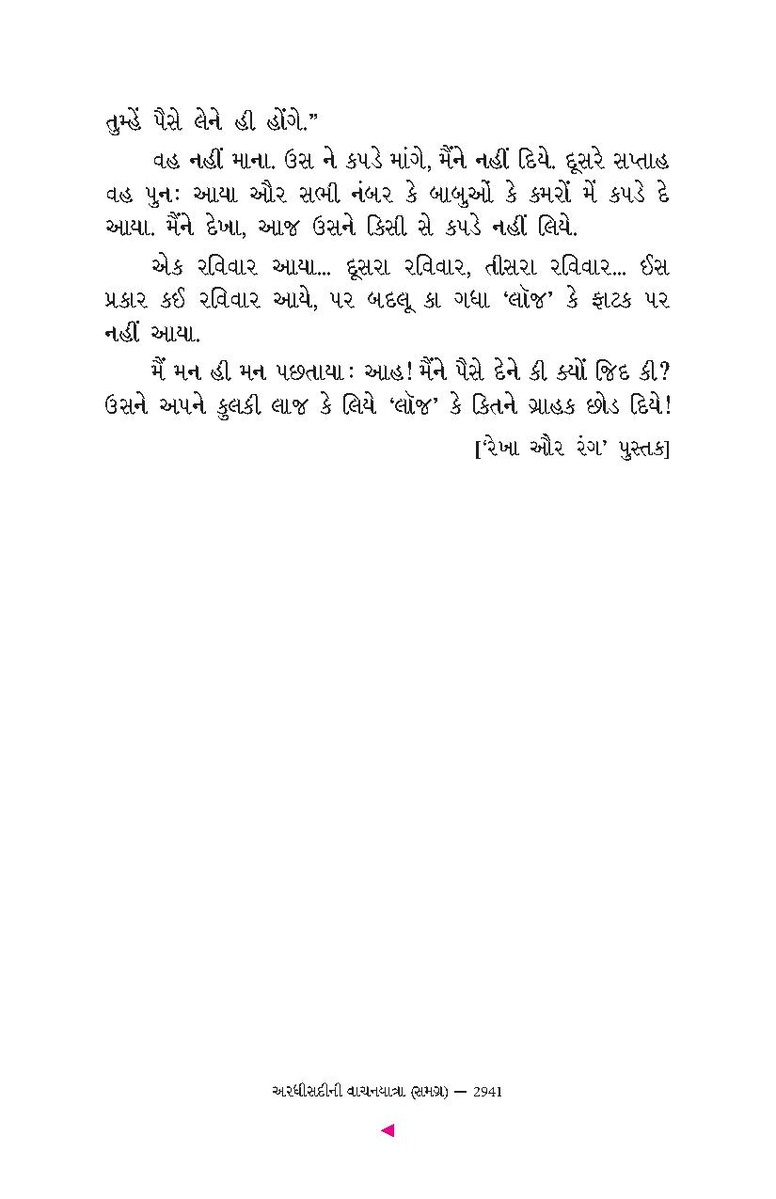 તુમ્હેં પૈસે લેને હી હોંગે.”
વહ નહીં માના. ઉસ ને કપડે માંગે, મૈંને નહીં દિયે. દૂસરે સપ્તાહ
વહ પુનઃ આયા ઔર સભી નંબર કે બાબુઓં કે કમરોં મેં કપડે દે
આયા. મૈંને દેખા, આજ ઉસને કિસી સે કપડે નહીં લિયે.
એક રવિવાર આયા... દૂસરા રવિવાર, તીસરા રવિવાર... ઈસ
પ્રકાર કઈ રવિવાર આયે, પર બદલૂ કા ગધા ‘લૉજ’ કે ફાટક પર
નહીં આયા.
મૈં મન હી મન પછતાયા: આહ! મૈંને પૈસે દેને કી ક્યોં જિદ કી?
ઉસને અપને કુલકી લાજ કે લિયે ‘લૉજ’ કે કિતને ગ્રાહક છોડ દિયે!
[‘રેખા ઔર રંગ’ પુસ્તક]
અરધીસદીની વાચનયાત્રા (સમગ્ર) — 2941